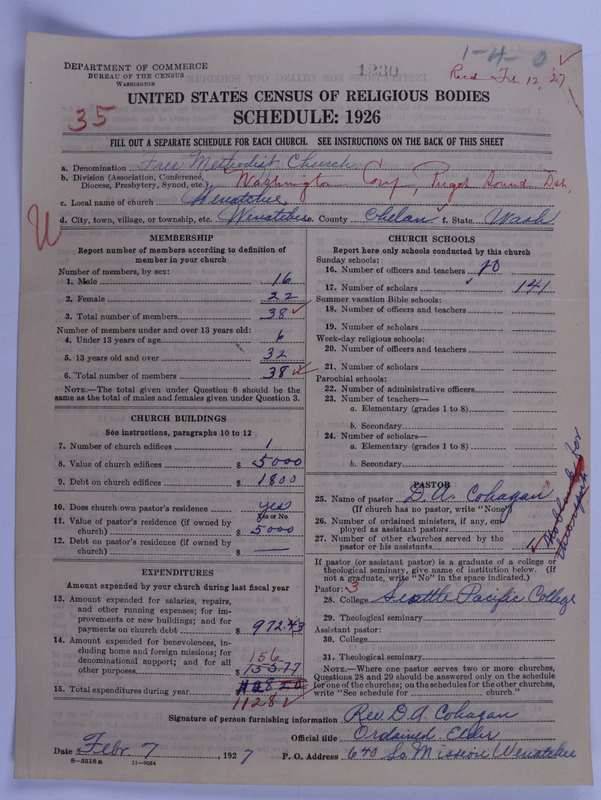 1-4-0
DEPARTMENT OF COMMERCE
BUREAU OF THE CENSUS
WASHINGTON
1230
Recd Feb 12, '27
UNITED STATES CENSUS OF RELIGIOUS BODIES
35
SCHEDULE: 1926
FILL OUT A SEPARATE SCHEDULE FOR EACH CHURCH. SEE INSTRUCTIONS ON THE BACK OF THIS SHEET
a. Denomination Free Methodist Church
b. Division (Association, Conference, Diocese, Presbytery, Synod, etc.) Washington Conf, Puget Sound Dist.
c. Local name of church Wenatchee
d. City, town, village, or township, etc. Wenatchee e. County Chelan f. State Wash
MEMBERSHIP
Report number of members according to definition of
member in your church
Number of members, by sex:
1. Male 16
2. Female 22
3. Total number of members 38
Number of members under and over 13 years old:
4. Under 13 years of age 6
5. 13 years old and over 32
6. Total number of members 38
NOTE.—The total given under Question 6 should be the
same as the total of males and females given under Question 3.
CHURCH BUILDINGS
See instructions, paragraphs 10 to 12
7. Number of church edifices 1
8. Value of church edifices $ 5000
9. Debt on church edifices $ 1800
10. Does church own pastor's residence yes
Yes or No
11. Value of pastor's residence (if owned by
church) $ 5000
12. Debt on pastor's residence (if owned by
church) $ —
EXPENDITURES
Amount expended by your church during last fiscal year
13. Amount expended for salaries, repairs,
and other running expenses; for im-
provements or new buildings; and for
payments on church debt $ 972.43
14. Amount expended for benevolences, in-
cluding home and foreign missions; for
denominational support; and for all
other purposes $ 155.77
156
15. Total expenditures during year
1128
CHURCH SCHOOLS
Report here only schools conducted by this church
Sunday schools:
16. Number of officers and teachers 20
17. Number of scholars 141
Summer vacation Bible schools:
18. Number of officers and teachers
19. Number of scholars
Week-day religious schools:
20. Number of officers and teachers
21. Number of scholars
Parochial schools:
22. Number of administrative officers
23. Number of teachers—
a. Elementary (grades 1 to 8)
b. Secondary
24. Number of scholars—
a. Elementary (grades 1 to 8)
b. Secondary
PASTOR
25. Name of pastor D. A. Cohagan
(If church has no pastor, write "None")
26. Number of ordained ministers, if any, em-
ployed as assistant pastors
27. Number of other churches served by the
pastor or his assistants
If pastor (or assistant pastor) is a graduate of a college or
theological seminary, give name of institution below. (If
not a graduate, write "No" in the space indicated.)
Pastor: 3
28. College Seattle Pacific College
29. Theological seminary
Assistant pastor:
30. College
31. Theological seminary
NOTE.—Where one pastor serves two or more churches,
Questions 28 and 29 should be answered only on the schedule
for one of the churches; on the schedules for the other churches,
write "See schedule for church."
Signature of person furnishing information Rev. D. A. Cohagan
Official title Ordained Elder
Date Febr. 7, 1927 P. O. Address 640 So. Mission Wenatchee
8—5518 a 11—9054